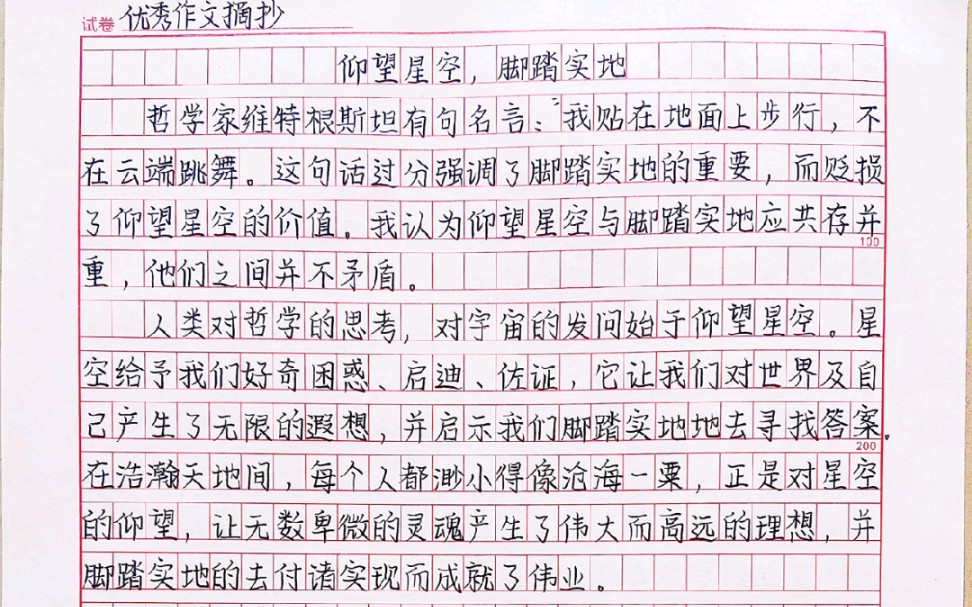 试卷 优秀作文摘抄
仰望星空，脚踏实地
哲学家维特根斯坦有句名言：“我贴在地面上步行，不
在云端跳舞。这句话过分强调了脚踏实地的重要，而贬损
了仰望星空的价值。我认为仰望星空与脚踏实地应共存并
100
重，他们之间并不矛盾。
人类对哲学的思考，对宇宙的发问始于仰望星空。星
空给予我们好奇困惑、启迪、佐证，它让我们对世界及自
己产生了无限的遐想，并启示我们脚踏实地地去寻找答案。
200
在浩瀚天地间，每个人都渺小得像沧海一粟，正是对星空
的仰望，让无数卑微的灵魂产生了伟大而高远的理想，并
脚踏实地的去付诸实现而成就了伟业。